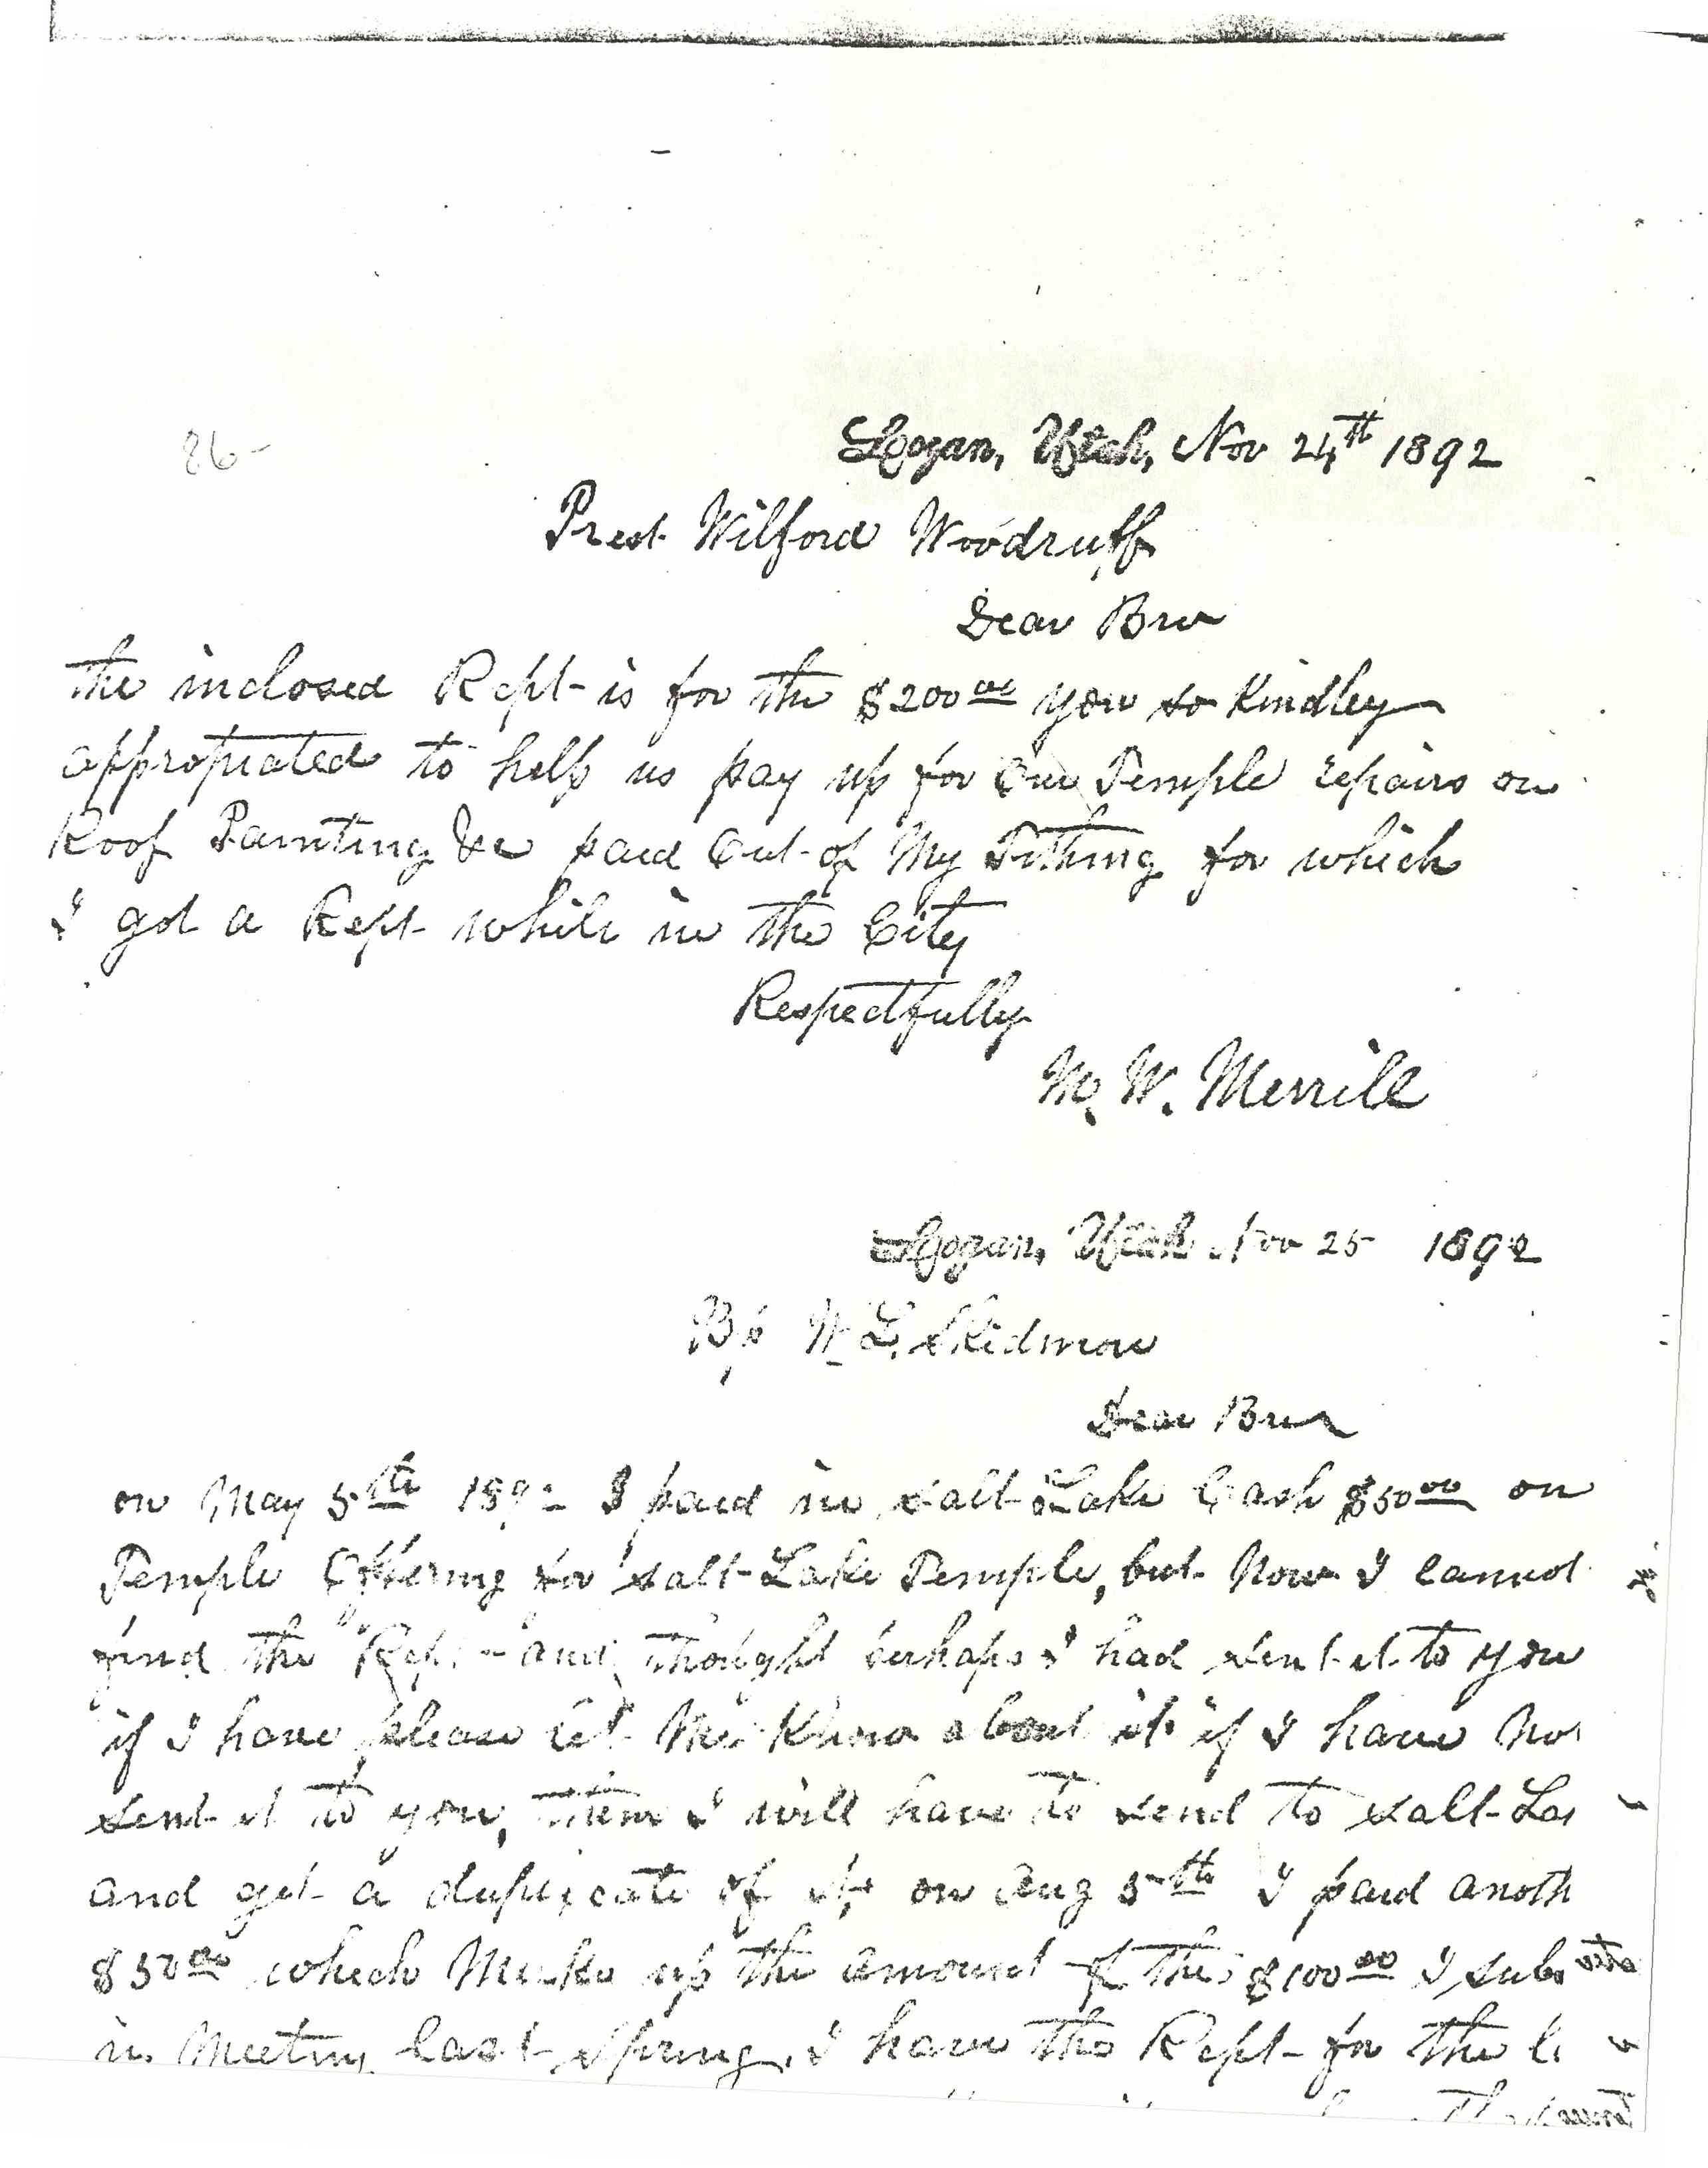 86-
Logan, Utah, Nov 24th 1892
Prest. Wilford Woodruff
Dear Bro
the inclosed Rcpt- is for the $200 00 you so Kindley
appropriated to help us pay up for Our Temple repairs on
Roof Painting &c paid Out-of My Tithing for which
I got a Rcpt- while in the City
Respectfully
M. W. Merrill
Logan, Utah Nov 25 1892
Bp W. L. Skidmore
Dear Bro
on May 5th 189 I paid in Salt-Lake Cash $50 00 on
Temple Offering for Salt-Lake Temple, but Now I cannot
find the Rcpt- and thought perhaps I had sent it to you
if I have please let Me Know about it if I have No
sent it to you, then I will have to send to Salt-La
and get a duplicate of it, on Aug 5th I paid anoth
$50 00 which Make up the amount of the $100 00 I subs
in Meeting last Spring. I have the Rcpt- for the